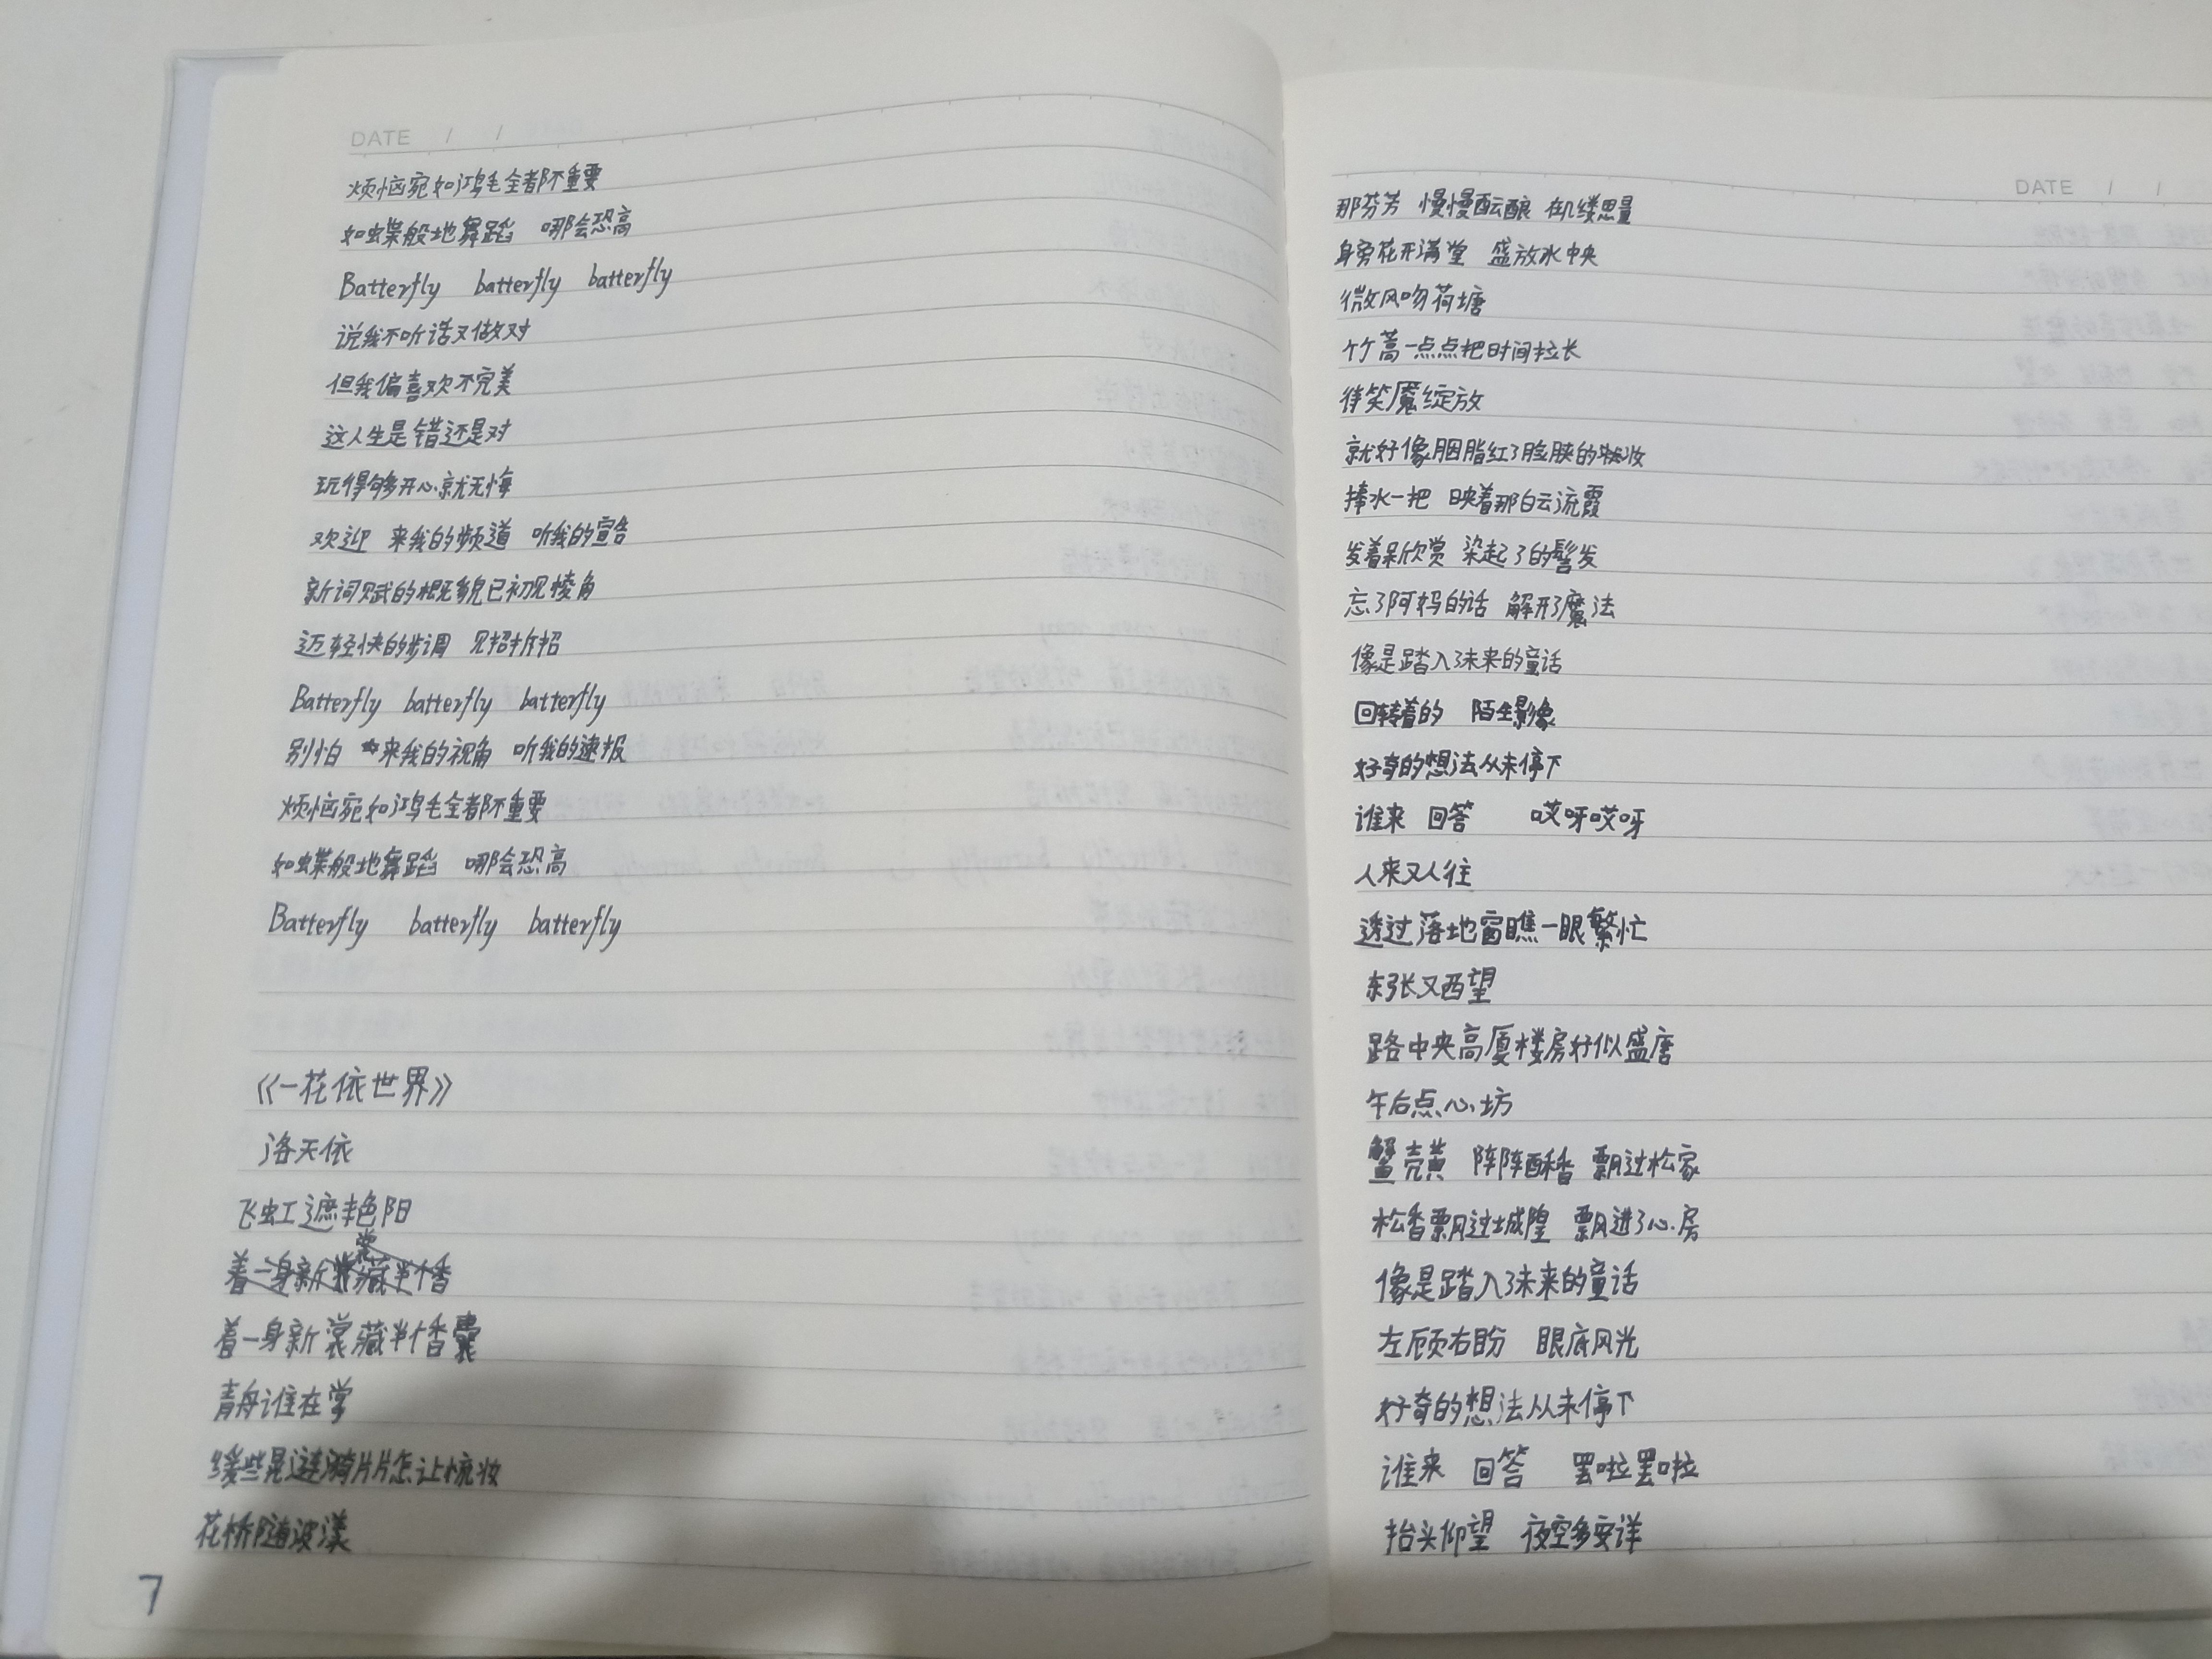 DATE / /
烦恼宛如鸿毛全都不重要
如蝶般地舞蹈 哪会恐高
Batterfly batterfly batterfly
说我不听话又做对
但我偏喜欢不完美
这人生是错还是对
玩得够开心就无悔
欢迎 来我的频道 听我的宣告
新词赋的概貌已初见棱角
迈轻快的步调 见招拆招
Batterfly batterfly batterfly
别怕 来我的视角 听我的速报
烦恼宛如鸿毛全都不重要
如蝶般地舞蹈 哪会恐高
Batterfly batterfly batterfly
《一花依世界》
洛天依
飞虹遮艳阳
着一身新裳藏半个香
着一身新裳藏半个香囊
青舟谁在掌
缓些晃涟漪片片怎让惊妆
花桥随波漾
7
DATE / /
那芬芳 慢慢酝酿 在几缕思量
身旁花开满堂 盛放水中央
微风吻荷塘
竹蒿一点点把时间拉长
待笑魇绽放
就好像胭脂红了脸颊的妆
捧水一把 映着那白云流霞
发着呆欣赏 染起了的髻发
忘了阿妈的话 解开了魔法
像是踏入了未来的童话
回转着的 陌生影像
好奇的想法从未停下
谁来 回答 哎呀哎呀
人来又人往
透过落地窗瞧一眼繁忙
东张又西望
路中央高厦楼房好似盛唐
午后点心坊
蟹壳黄 阵阵酥香 飘过松家
松香飘过城隍 飘进了心房
像是踏入了未来的童话
左顾右盼 眼底风光
好奇的想法从未停下
谁来 回答 罢啦罢啦
抬头仰望 夜空多安详